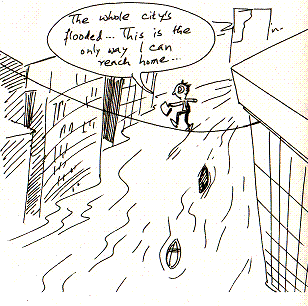 The whole city's
flooded... This is the
only way I can
reach home...